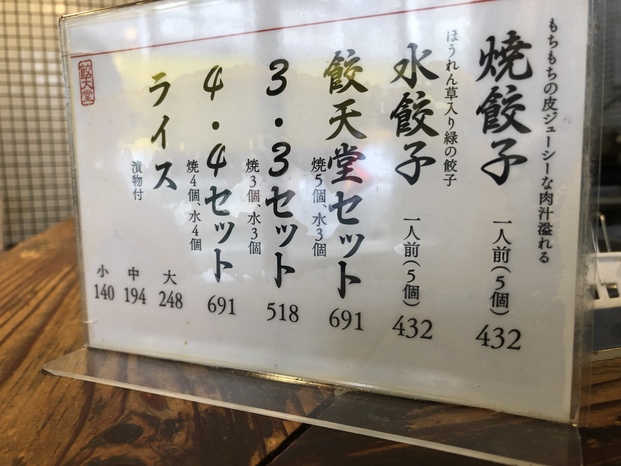 もちもちの皮ジューシーな肉汁溢れる
焼餃子 一人前(5個) 432
ほうれん草入り緑の餃子
水餃子 一人前(5個) 432
餃天堂セット 691
焼5個、水3個
3・3セット 518
焼3個、水3個
4・4セット 691
焼4個、水4個
ライス
漬物付
大 248
中 194
小 140
餃天堂